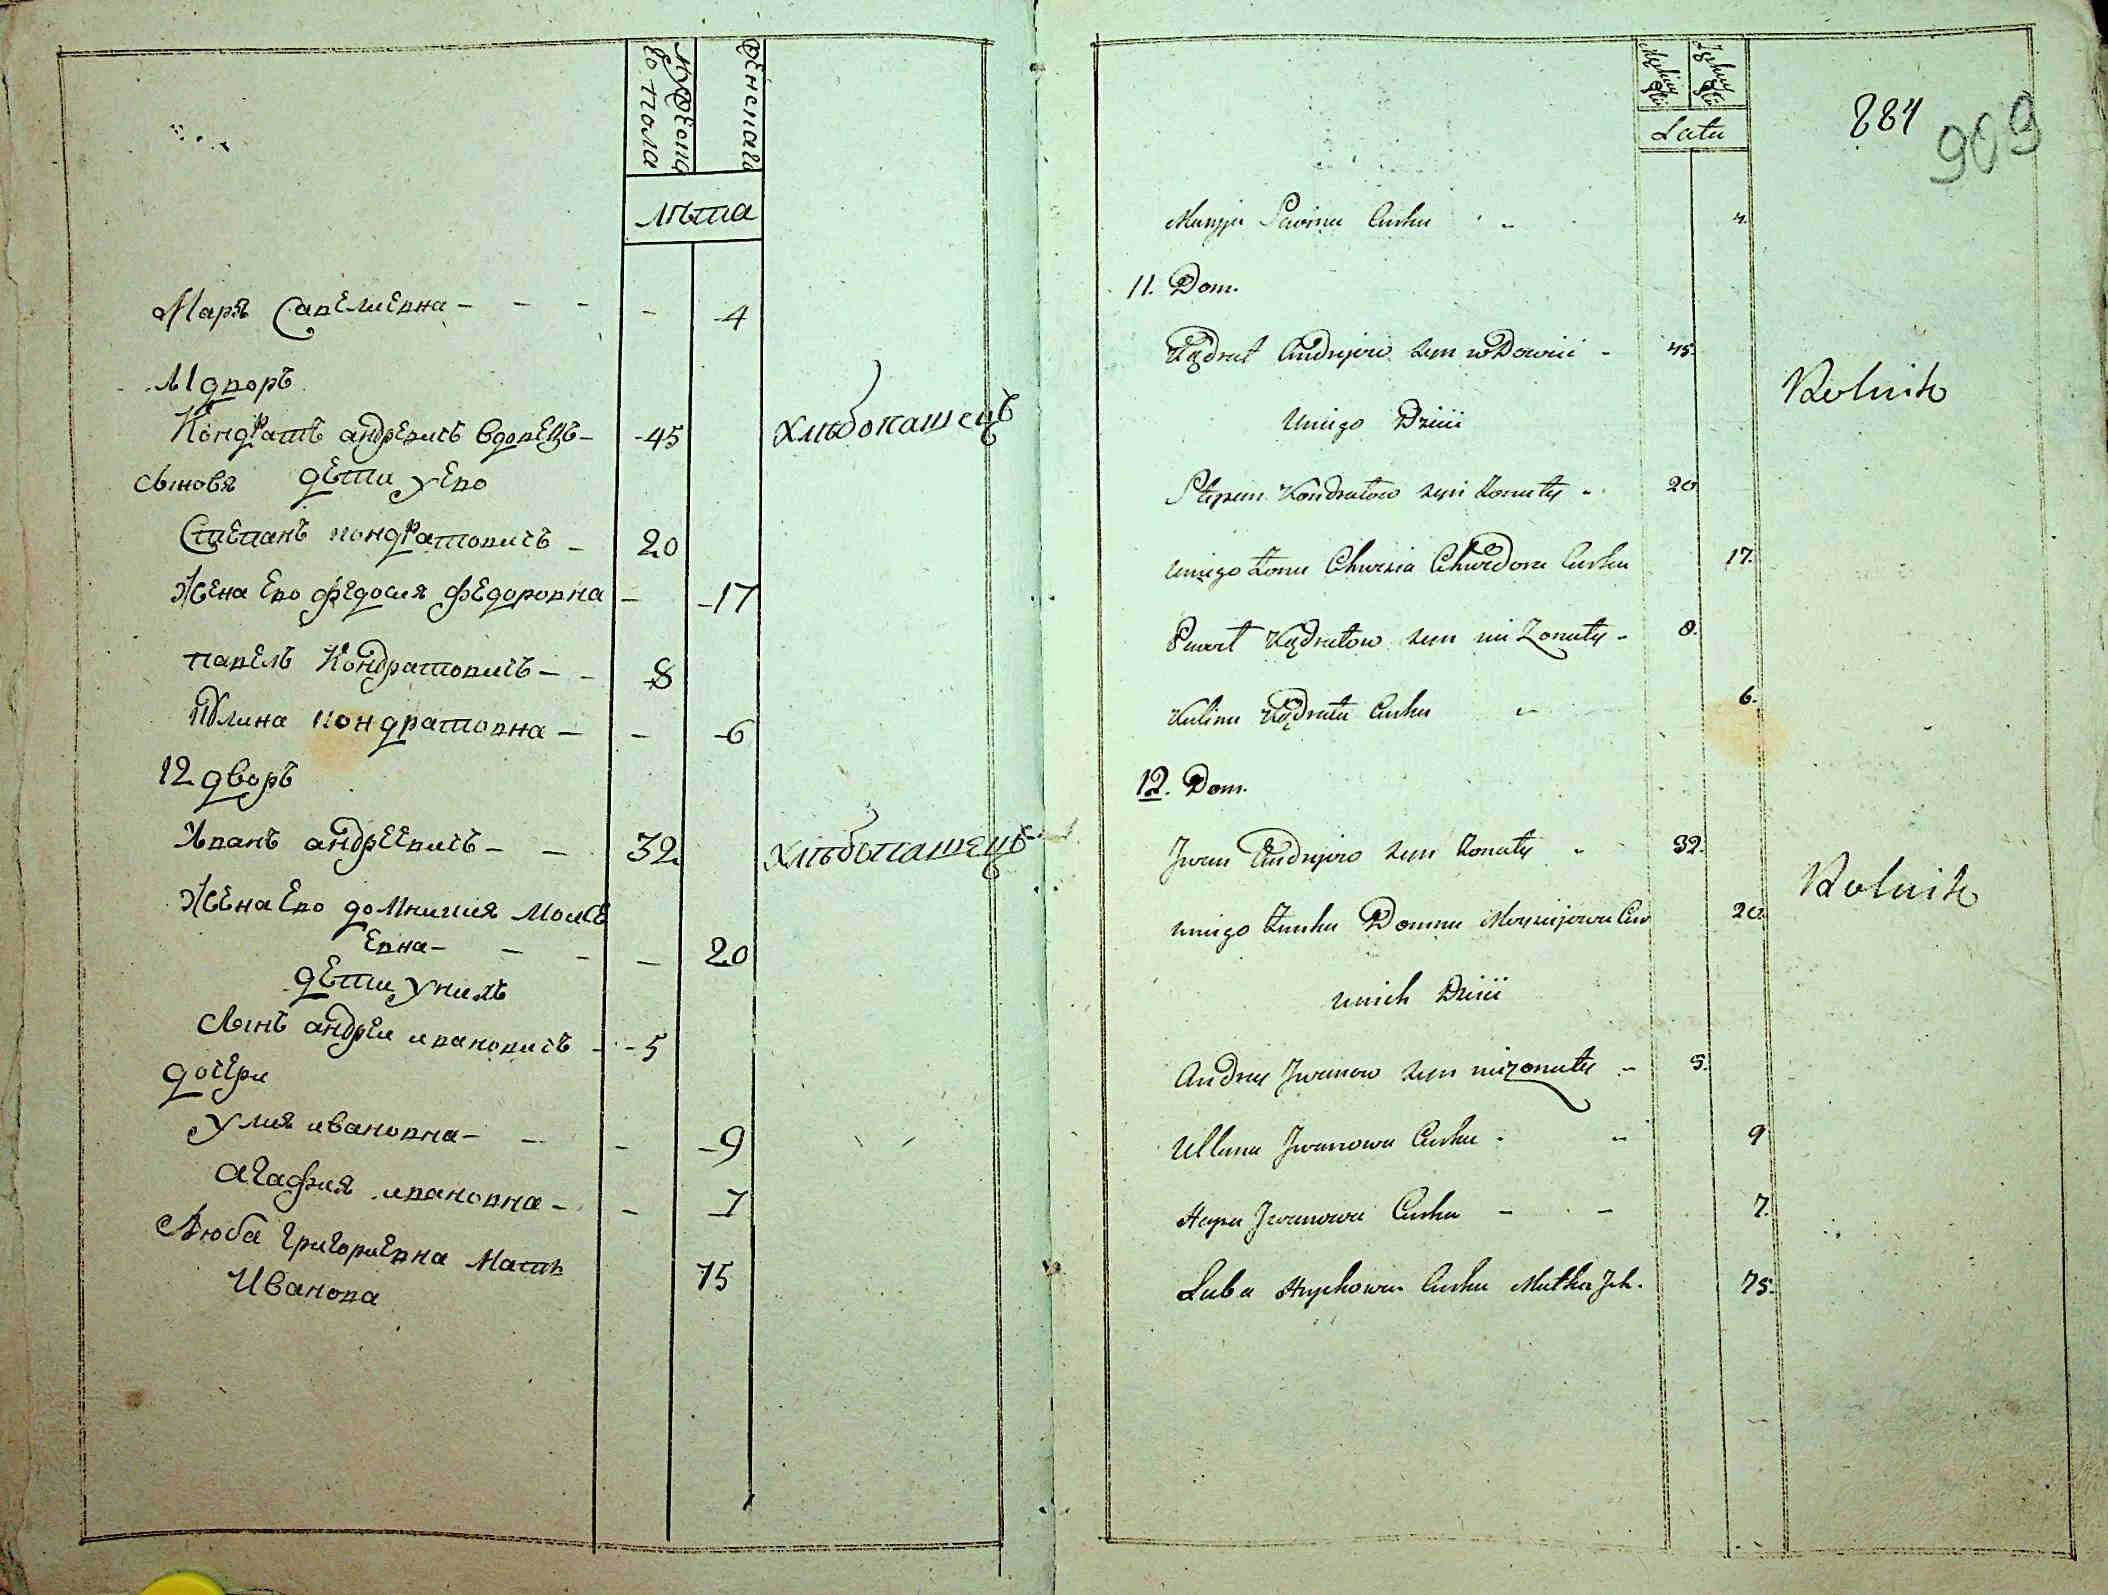 мужеска
го пола
женская
лѣта
Маря Савелиевна - - - - 4
11 дворъ
Кондратъ андрѣевичъ вдовецъ - 45 хлѣбопашецъ
сыновя дѣти у его
Степанъ кондратовичъ - 20
Жена его федосия федоровна - 17
павелъ Кондратовичъ - - 8
Кулина кондратовна - - 6
12 дворъ
Иванъ андрѣевичъ - - 32 хлѣбопашецъ
Жена его домникия Моисѣ
евна - - - - 20
дѣти у нихъ
сынъ андрей ивановичъ - - 5
дочери
улия ивановна - - - 9
агафия ивановна - - 7
Люба григориевна мать
Иванова 75
Męskiey
Płci
Żęńskiey
Płci
Lata
884
909
Marya Sawina Curka " 4.
11. Dom.
Kądrat Andryiow syn wdowiec - 45. Rolnik
U niego Dzieci
Stepan Kondratow syn żonaty - 20
u niego żona Chwesia Chwedora Curka 17.
Paweł Kądratow syn nie żonaty - 8.
Kulina Kądrata Curka " 6.
12. Dom.
Jwan Andryiow syn żonaty " 32. Rolnik
u niego żonka Domna Moysiejowa Cur 20.
u nich Dzieci
Andrey Jwanow syn nieżonaty - 5.
Ullana Jwanowa Curka - " 9
Hapa Jwanowa Curka - - 7.
Luba Hryhowa Curka Matka Jch. 75.